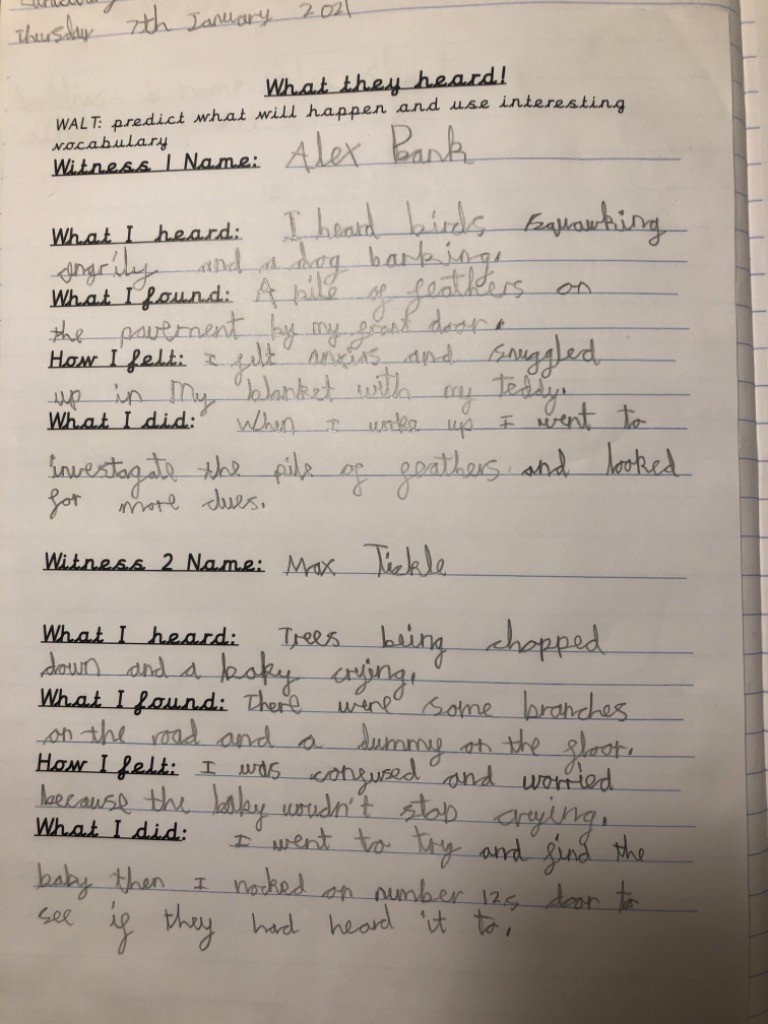 Thursday 7th January 2021
What they heard!
WALT: predict what will happen and use interesting
vocabulary
Witness 1 Name: Alex Bank
What I heard: I heard birds squawking
angrily and a dog barking.
What I found: A pile of feathers on
the pavement by my front door.
How I felt: I felt anxius and snuggled
up in My blanket with my teddy.
What I did: When I woke up I went to
investagate the pile of feathers and looked
for more clues.
Witness 2 Name: Max Tickle
What I heard: Trees being chopped
down and a baby crying.
What I found: There were some branches
on the road and a dummy on the floor.
How I felt: I was confused and worried
because the baby woudn't stop crying.
What I did: I went to try and find the
baby then I nocked on number 12s door to
see if they had heard it to.